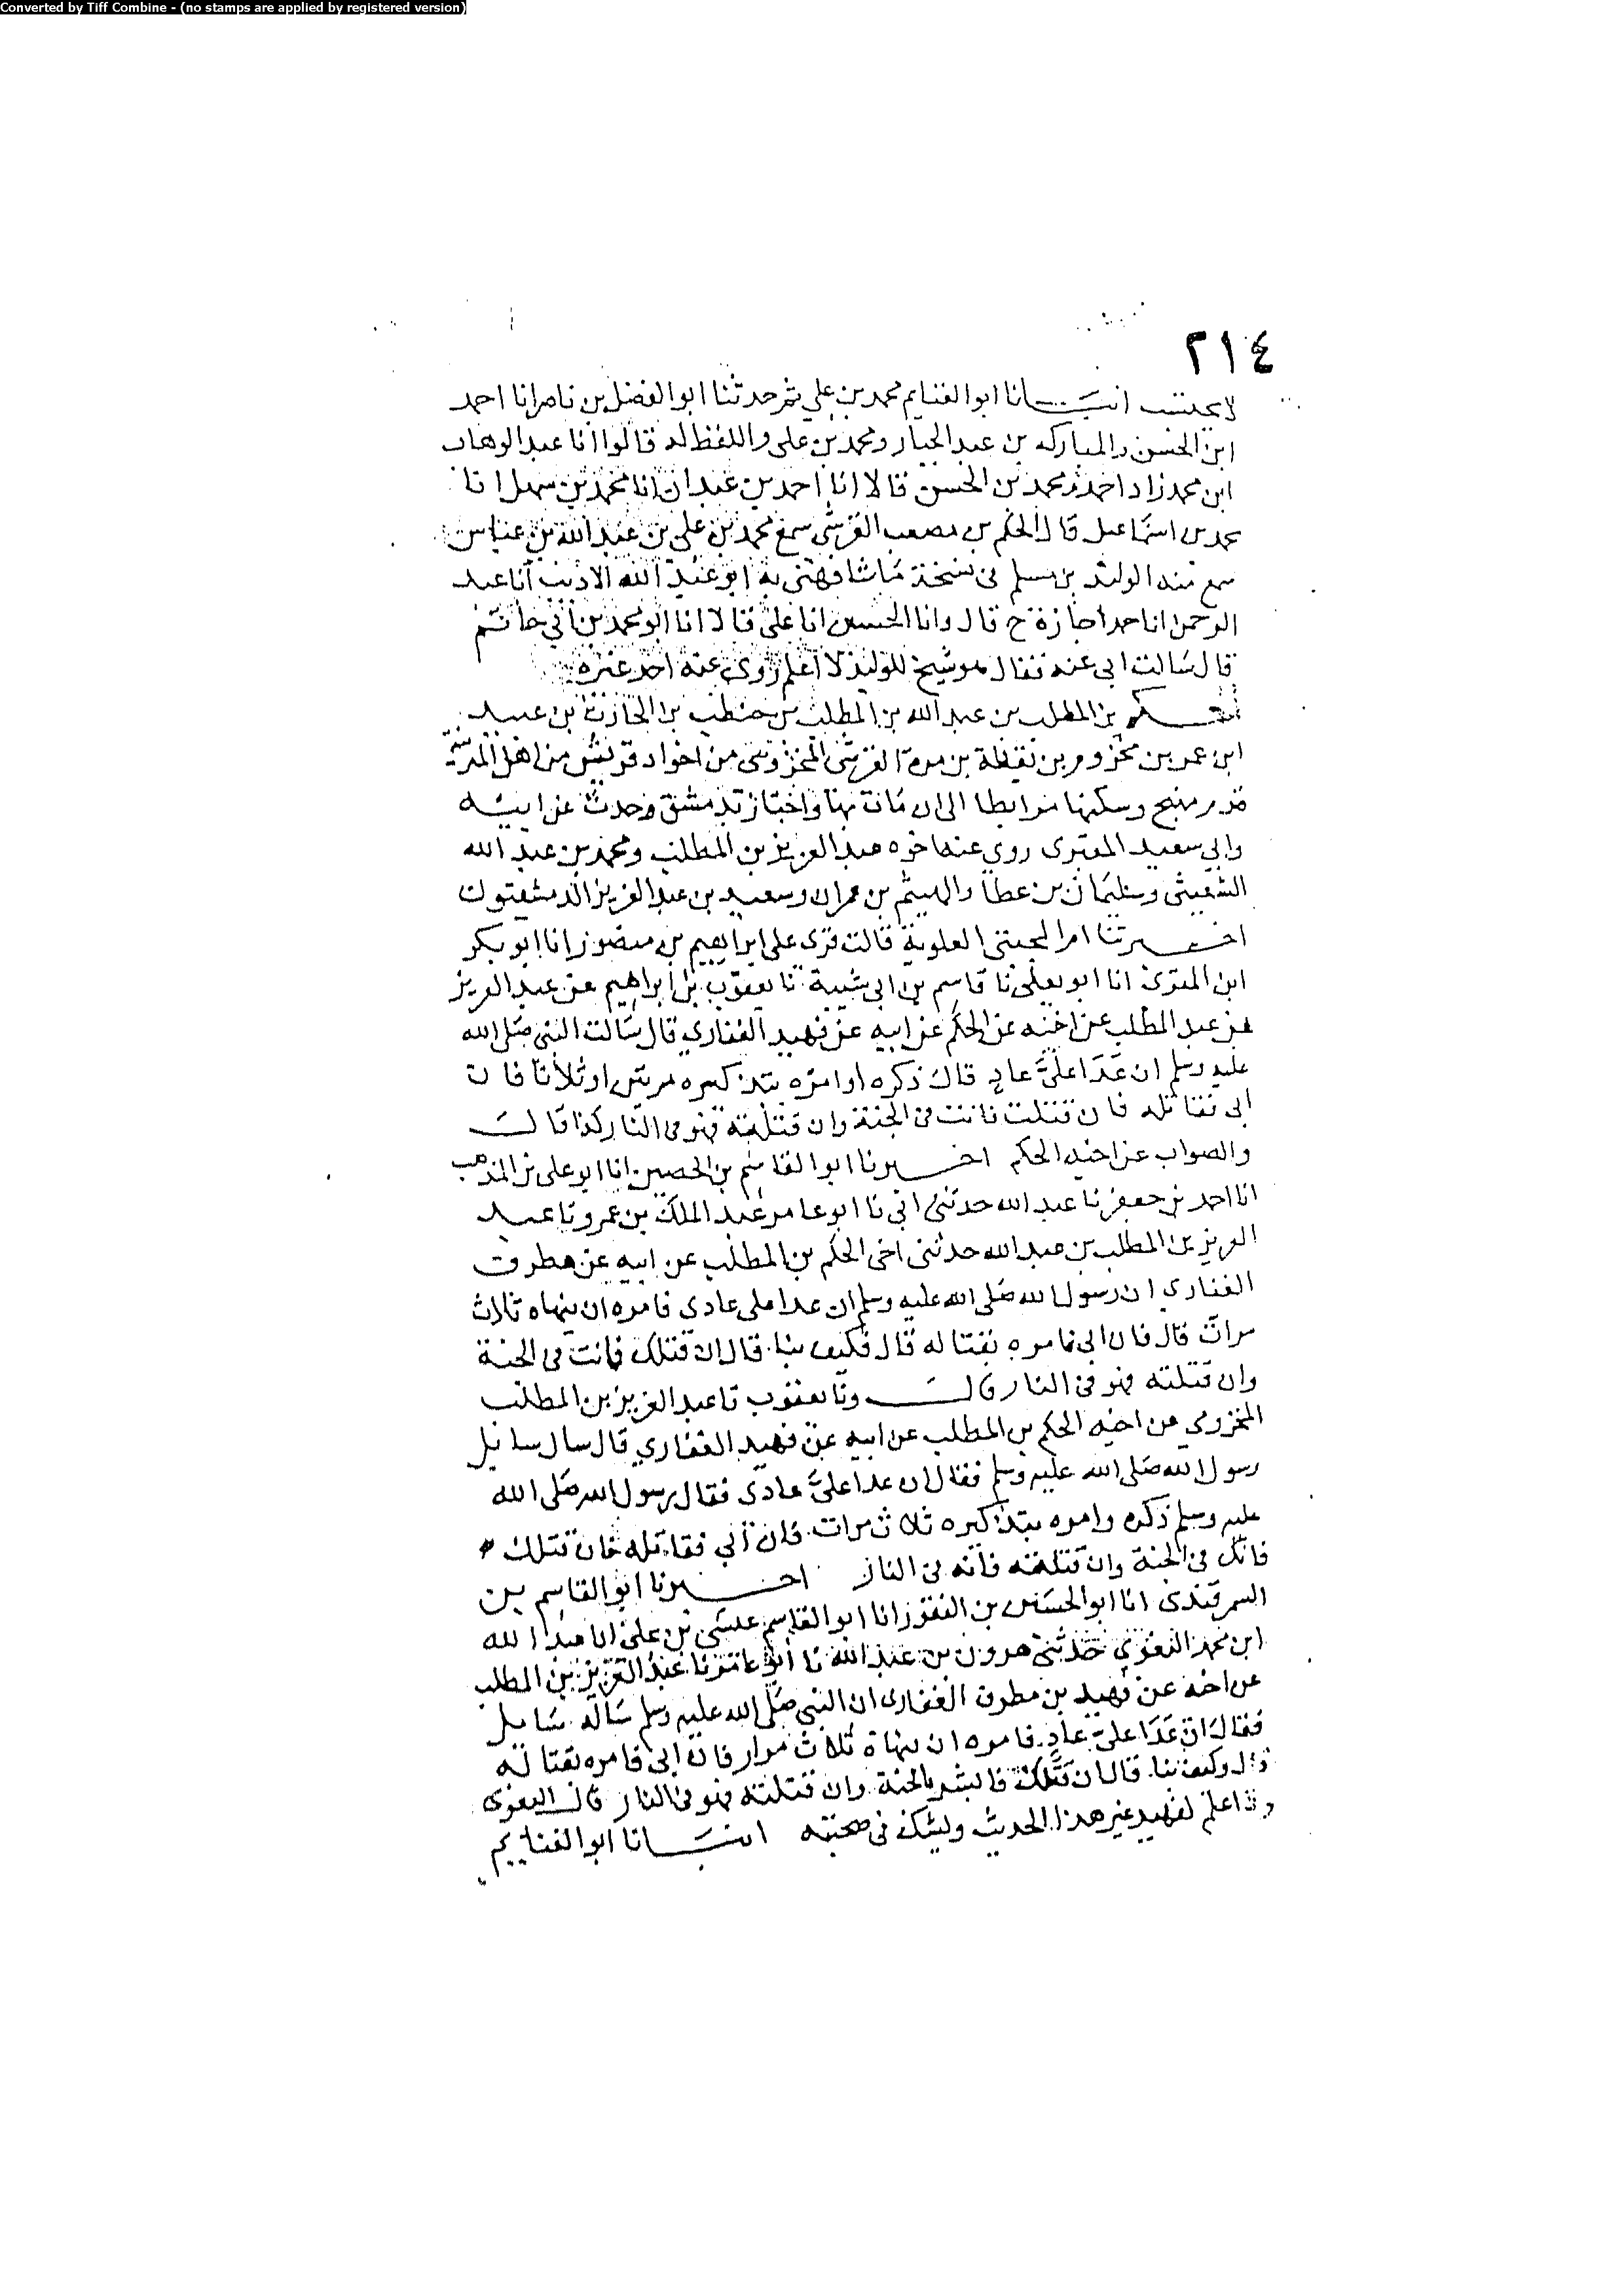 Converted by Tiff Combine - (no stamps are applied by registered version)
٢١٤
لا يحتسب انبـــانا ابو الغنايم محمد بن علي ثم حدثنا ابو الفضل بن ناصر انا احمد
ابن الحسن والمبارك بن عبد الجبار ومحمد بن علي واللفظ له قالوا انا عبد الوهاب
ابن محمد زاد احمد ومحمد بن الحسن قالا انا احمد بن عبدان انا محمد بن سهل انا
محمد بن اسماعيل قال الحكم بن مصعب القرشي سمع محمد بن علي بن عبد الله بن عباس
سمع منه الوليد بن مسلم في نسخة ما شافهني به ابو عبد الله الاديب انا عبد
الرحمن انا حمد اجازة ح قال وانا الحسين انا علي قالا انا ابو محمد بن ابي حاتم
قال سالت ابي عنه فقال هو شيخ للوليد لا اعلم روى عنه احد غيره
الحكم بن المطلب بن عبد الله بن المطلب بن حنطب بن الحارث بن عبيد
ابن عمر بن مخزوم بن يقظة بن مرة القرشي المخزومي من اجواد قريش من اهل المدينة
قدم منبج وسكنها مرابطا الى ان مات بها واجتاز بدمشق وحدث عن ابيه
وابي سعيد المقبري روى عنه اخوه عبد العزيز بن المطلب ومحمد بن عبد الله
الشعيثي وسليمان بن عطا والهيثم بن عمران وسعيد بن عبد العزيز الدمشقيون
اخبرتنا ام المجتبى العلوية قالت قرى على ابراهيم بن منصور انا ابو بكر
ابن المقرئ انا ابو يعلى نا قاسم بن ابي شيبة نا يعقوب بن ابراهيم عن عبد العزيز
بن عبد المطلب عن اخيه عن الحكم عن ابيه عن فهيد الغفاري قال سالت النبي صلى الله
عليه وسلم ان عدا علي عاد قال ذكره او امره بتذكيره مرتين او ثلاثا فان
ابى فقاتله فان قتلت فانت في الجنة وان قتلته فهو في النار كذا قالـــ
والصواب عن اخيه الحكم اخـــبرنا ابو القاسم بن الحصين انا ابو علي بن المذهب
انا احمد بن جعفر نا عبد الله حدثني ابي نا ابو عامر عبد الملك بن عمرو نا عبد
العزيز بن المطلب بن عبد الله حدثني اخي الحكم بن المطلب عن ابيه عن مطرف
الغفاري ان رسول الله صلى الله عليه وسلم ان عدا علي عادي فامره ان ينهاه ثلاث
مرات قال فان ابى فامره بقتاله قال فكيف بنا قال ان قتلك فانت في الجنة
وان قتلته فهو في النار قالـــ ونا يعقوب نا عبد العزيز بن المطلب
المخزومي عن اخيه الحكم بن المطلب عن ابيه عن فهيد الغفاري قال سال سايل
رسول الله صلى الله عليه وسلم فقال ان عدا علي عادى فقال رسول الله صلى الله
عليه وسلم ذكره وامره بتذكيره ثلاث مرات فان ابى فقاتله فان قتلك
فانك في الجنة وان قتلته فانه في النار اخـــبرنا ابو القاسم بن
السمرقندى انا ابو الحسين بن النقور انا ابو القاسم عيسى بن علي انا عبد الله
ابن محمد البغوي حدثني هرون بن عبد الله نا ابو عامر نا عبد العزيز بن المطلب
عن اخيه عن فهيد بن مطرف الغفارى ان النبي صلى الله عليه وسلم ساله سايل
فقال ان عدا علي عاد فامره ان ينهاه ثلاث مرار فان ابى فامره بقتاله
قال وكيف بنا قال ان قتلك فابشر بالجنة وان قتلته فهو في النار قال البغوى
ولا اعلم لفهيد غير هذا الحديث ويشك في صحبته انبـــانا ابو الغنايم